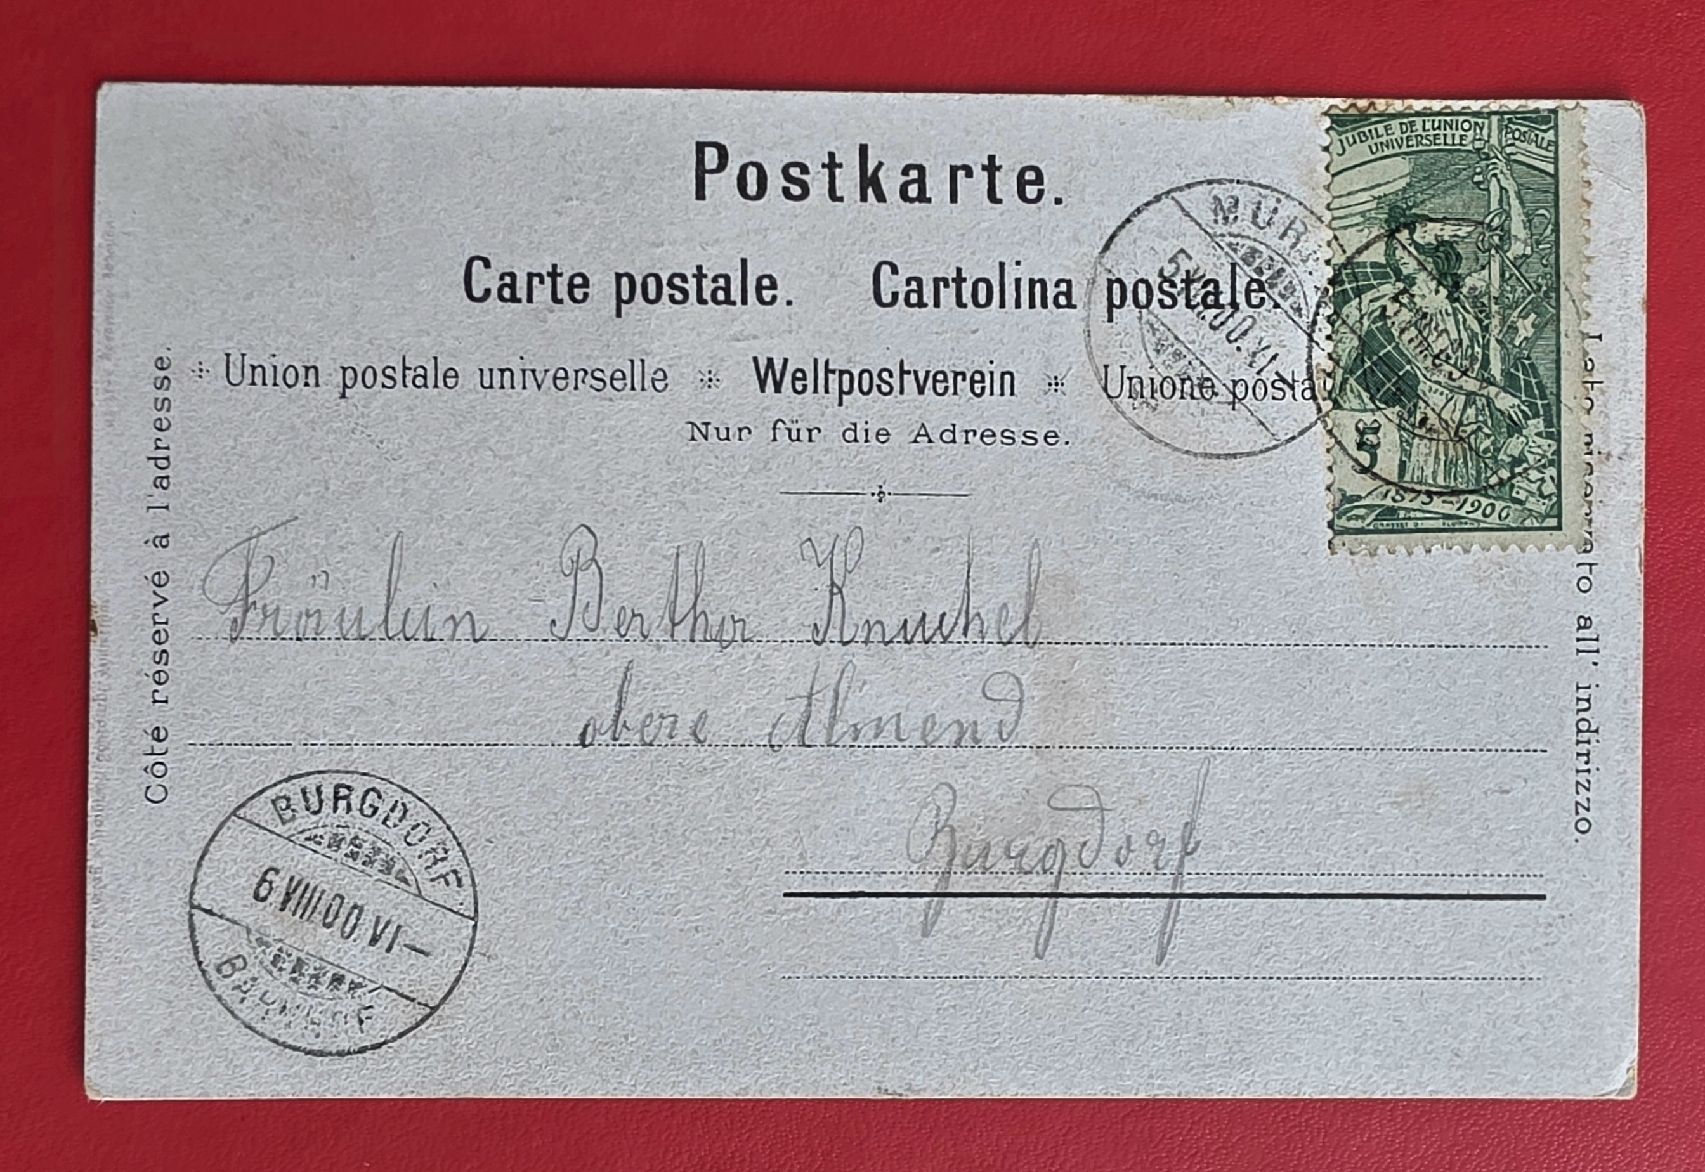 Postkarte.
Carte postale. Cartolina postale.
Union postale universelle * Weltpostverein * Unione posta
Nur für die Adresse.
Côté réservé à l'adresse.
all' indirizzo.
JUBILE DE L'UNION POSTALE
UNIVERSELLE
5
1875-1900
MÜR
5 VIII.00.VI
Fräulein Bertha Knuchel
obere Almend
Burgdorf
BURGDORF
6 VIII 00 VI —
BAHNHOF